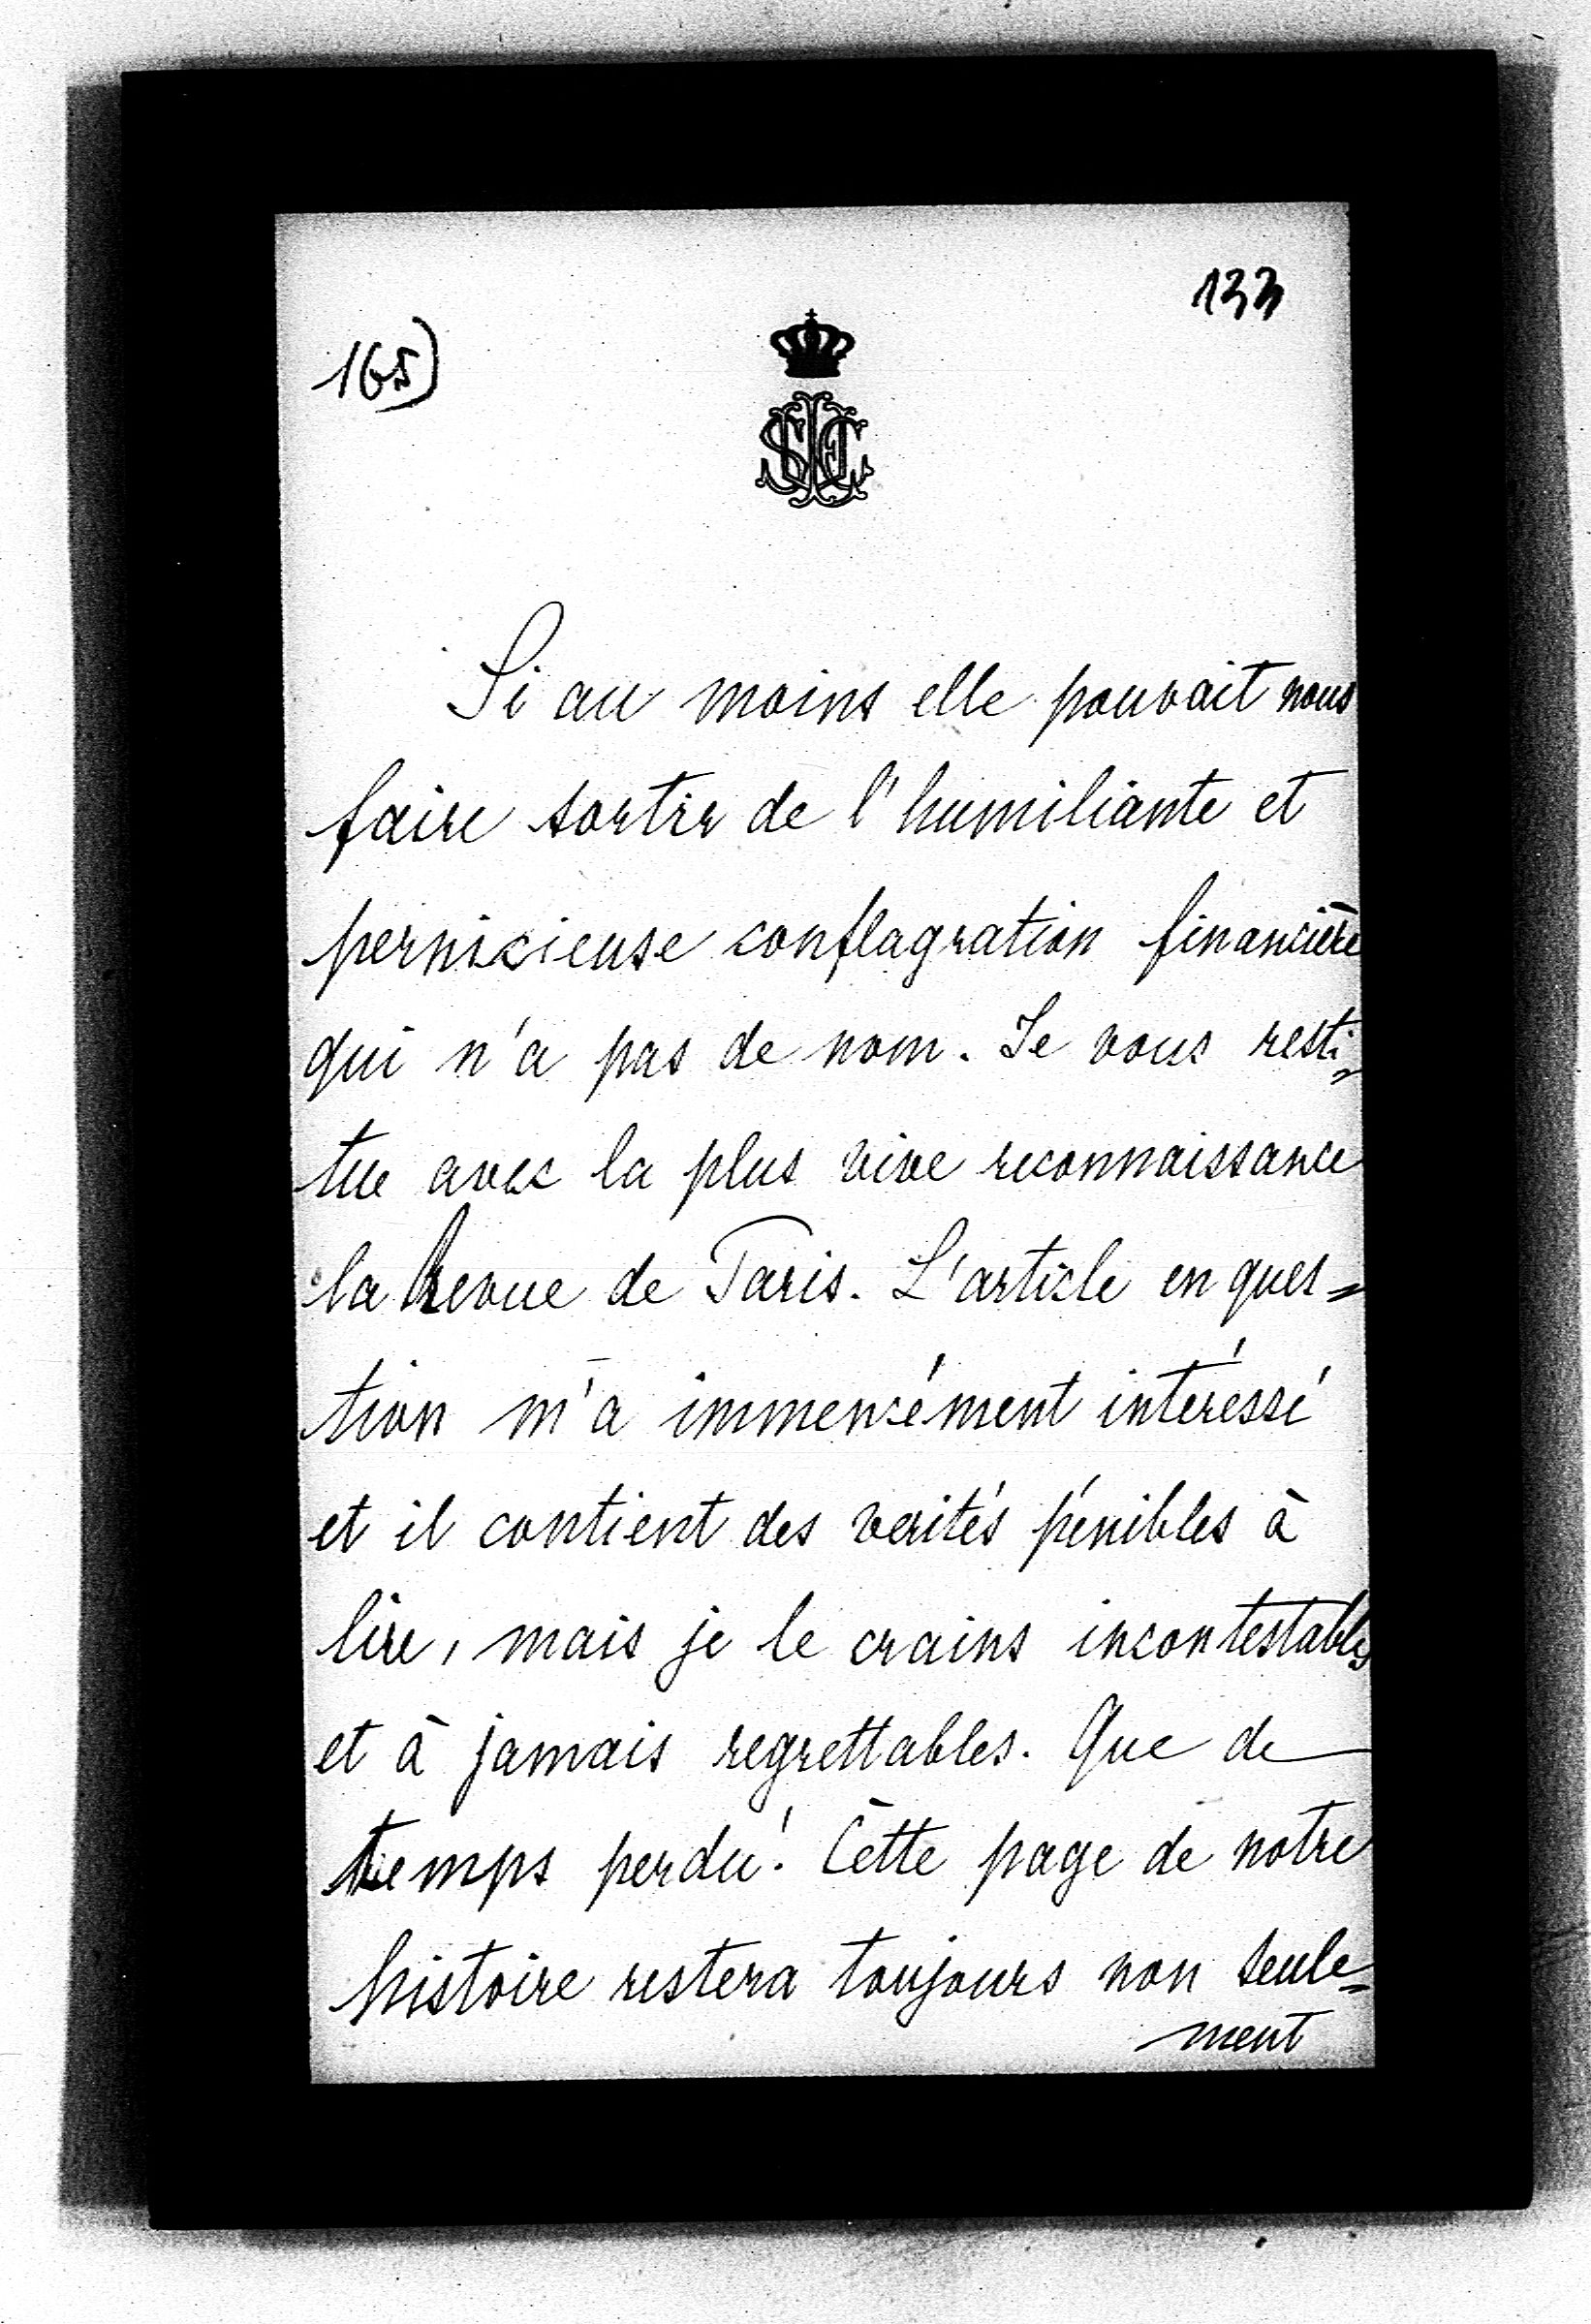 133
165)
Si au moins elle pouvait nous
faire sortir de l'humiliante et
pernicieuse conflagration financière
qui n'a pas de nom. Je vous resti=
tue avec la plus vive reconnaissance
la Revue de Paris. L'article en ques=
tion m'a immensément intéréssé
et il contient des verités pénibles à
lire, mais je le crains incontestables
et à jamais regrettables. Que de
temps perdu! Cètte page de notre
histoire restera toujours non seule=
ment